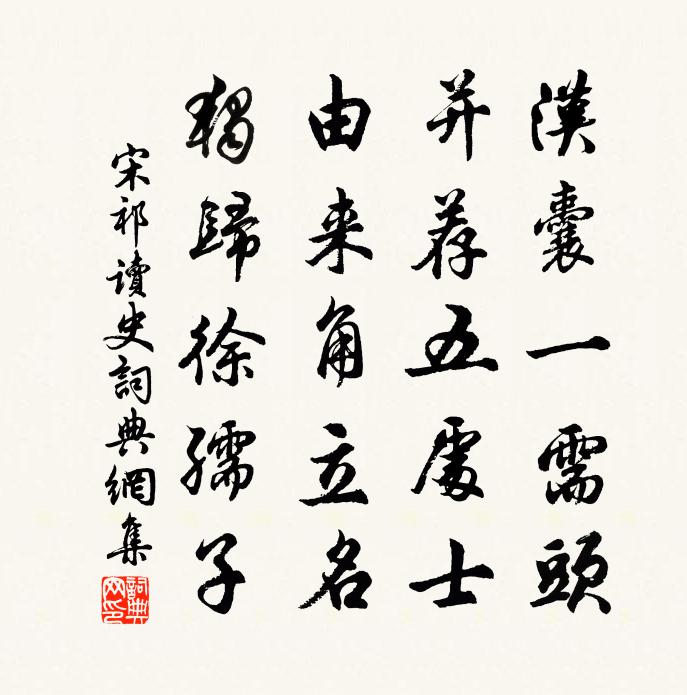 漢囊一需頭
并荐五處士
由来角立名
獨歸徐孺子
宋祁讀史詞典網集
詞典
网印